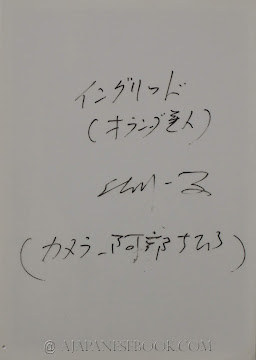 イングリッド
(オランダ美人)
(カメラ_阿部ちひろ)
@ AJAPANESEBOOK.COM